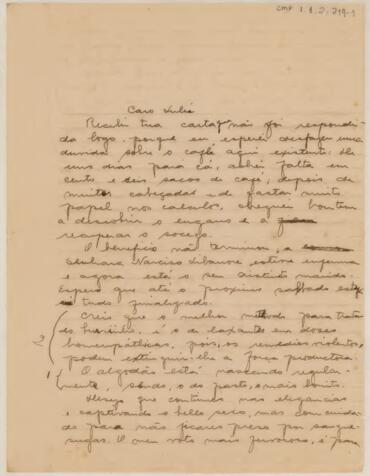 CMP 1.1.2.219-1
Caro Julio
Recebi tua carta q não foi respondi-
da logo, porque eu esperei desfazer uma
duvida sobre o café aqui existente. De
uns dias para cá, achei falta em
cento e seis sacos de café, depois de
muitas cabeçadas e de gastar muito
papel nos calculos, cheguei hontem
a descobrir o engano e a
recuperar o socego.
O beneficio não terminou, a
Senhora Narciso esteve enferma
e agora está o seu distincto marido.
Espero que até o proximo sabbado esteja
tudo finalizado.
2 Creio que o melhor methodo para trata-
do é o de laxantes em doses
homeopathicas, pois, os remedios violentos,
podem extinguir-lhe a força productora.
1 O algodão está nascendo regular-
mente, sendo, o do pasto, o mais bonito.
Desejo que continues nas elegancias
e captivando o bello sexo, mas com cuida-
do para não ficares preso por sangue-
sugas. O meu voto mais fervoroso, é para